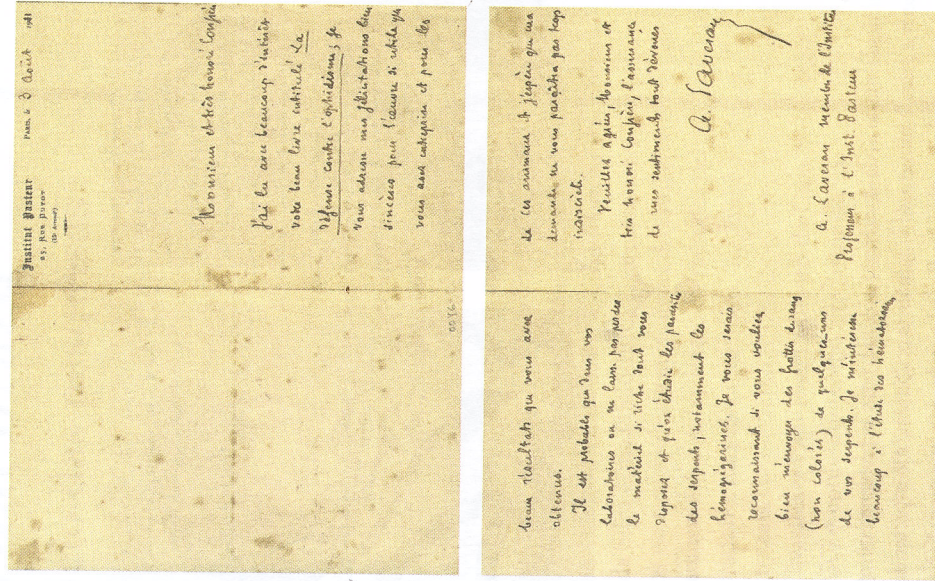 Institut Pasteur
25, Rue Dutot
Paris, le 3 Août 1911
Monsieur et très honoré Confrère
J'ai lu avec beaucoup d'intérêt
votre beau livre intitulé La
défense contre l'ophidisme; je
vous adresse mes félicitations bien
sincères pour l'œuvre si utile que
vous avez entreprise et pour les
0036
beaux résultats que vous avez
obtenus.
Il est probable que dans vos
laboratoires on ne laisse pas perdre
le matériel si riche dont vous
disposez et qu'on étudie les parasites
des serpents, notamment les
hémogrégarines. Je vous serais
reconnaissant si vous vouliez
bien m'envoyer des frottis de sang
(non colorés) de quelques-uns
de vos serpents. Je m'intéresse
beaucoup à l'étude des hématozoaires
de ces animaux et j'espère que ma
demande ne vous paraîtra pas trop
indiscrète.
Veuillez agréer, Monsieur et
très honoré Confrère, l'assurance
de mes sentiments tout dévoués
A. Laveran
A. Laveran membre de l'Institut
Professeur à l'Inst Pasteur